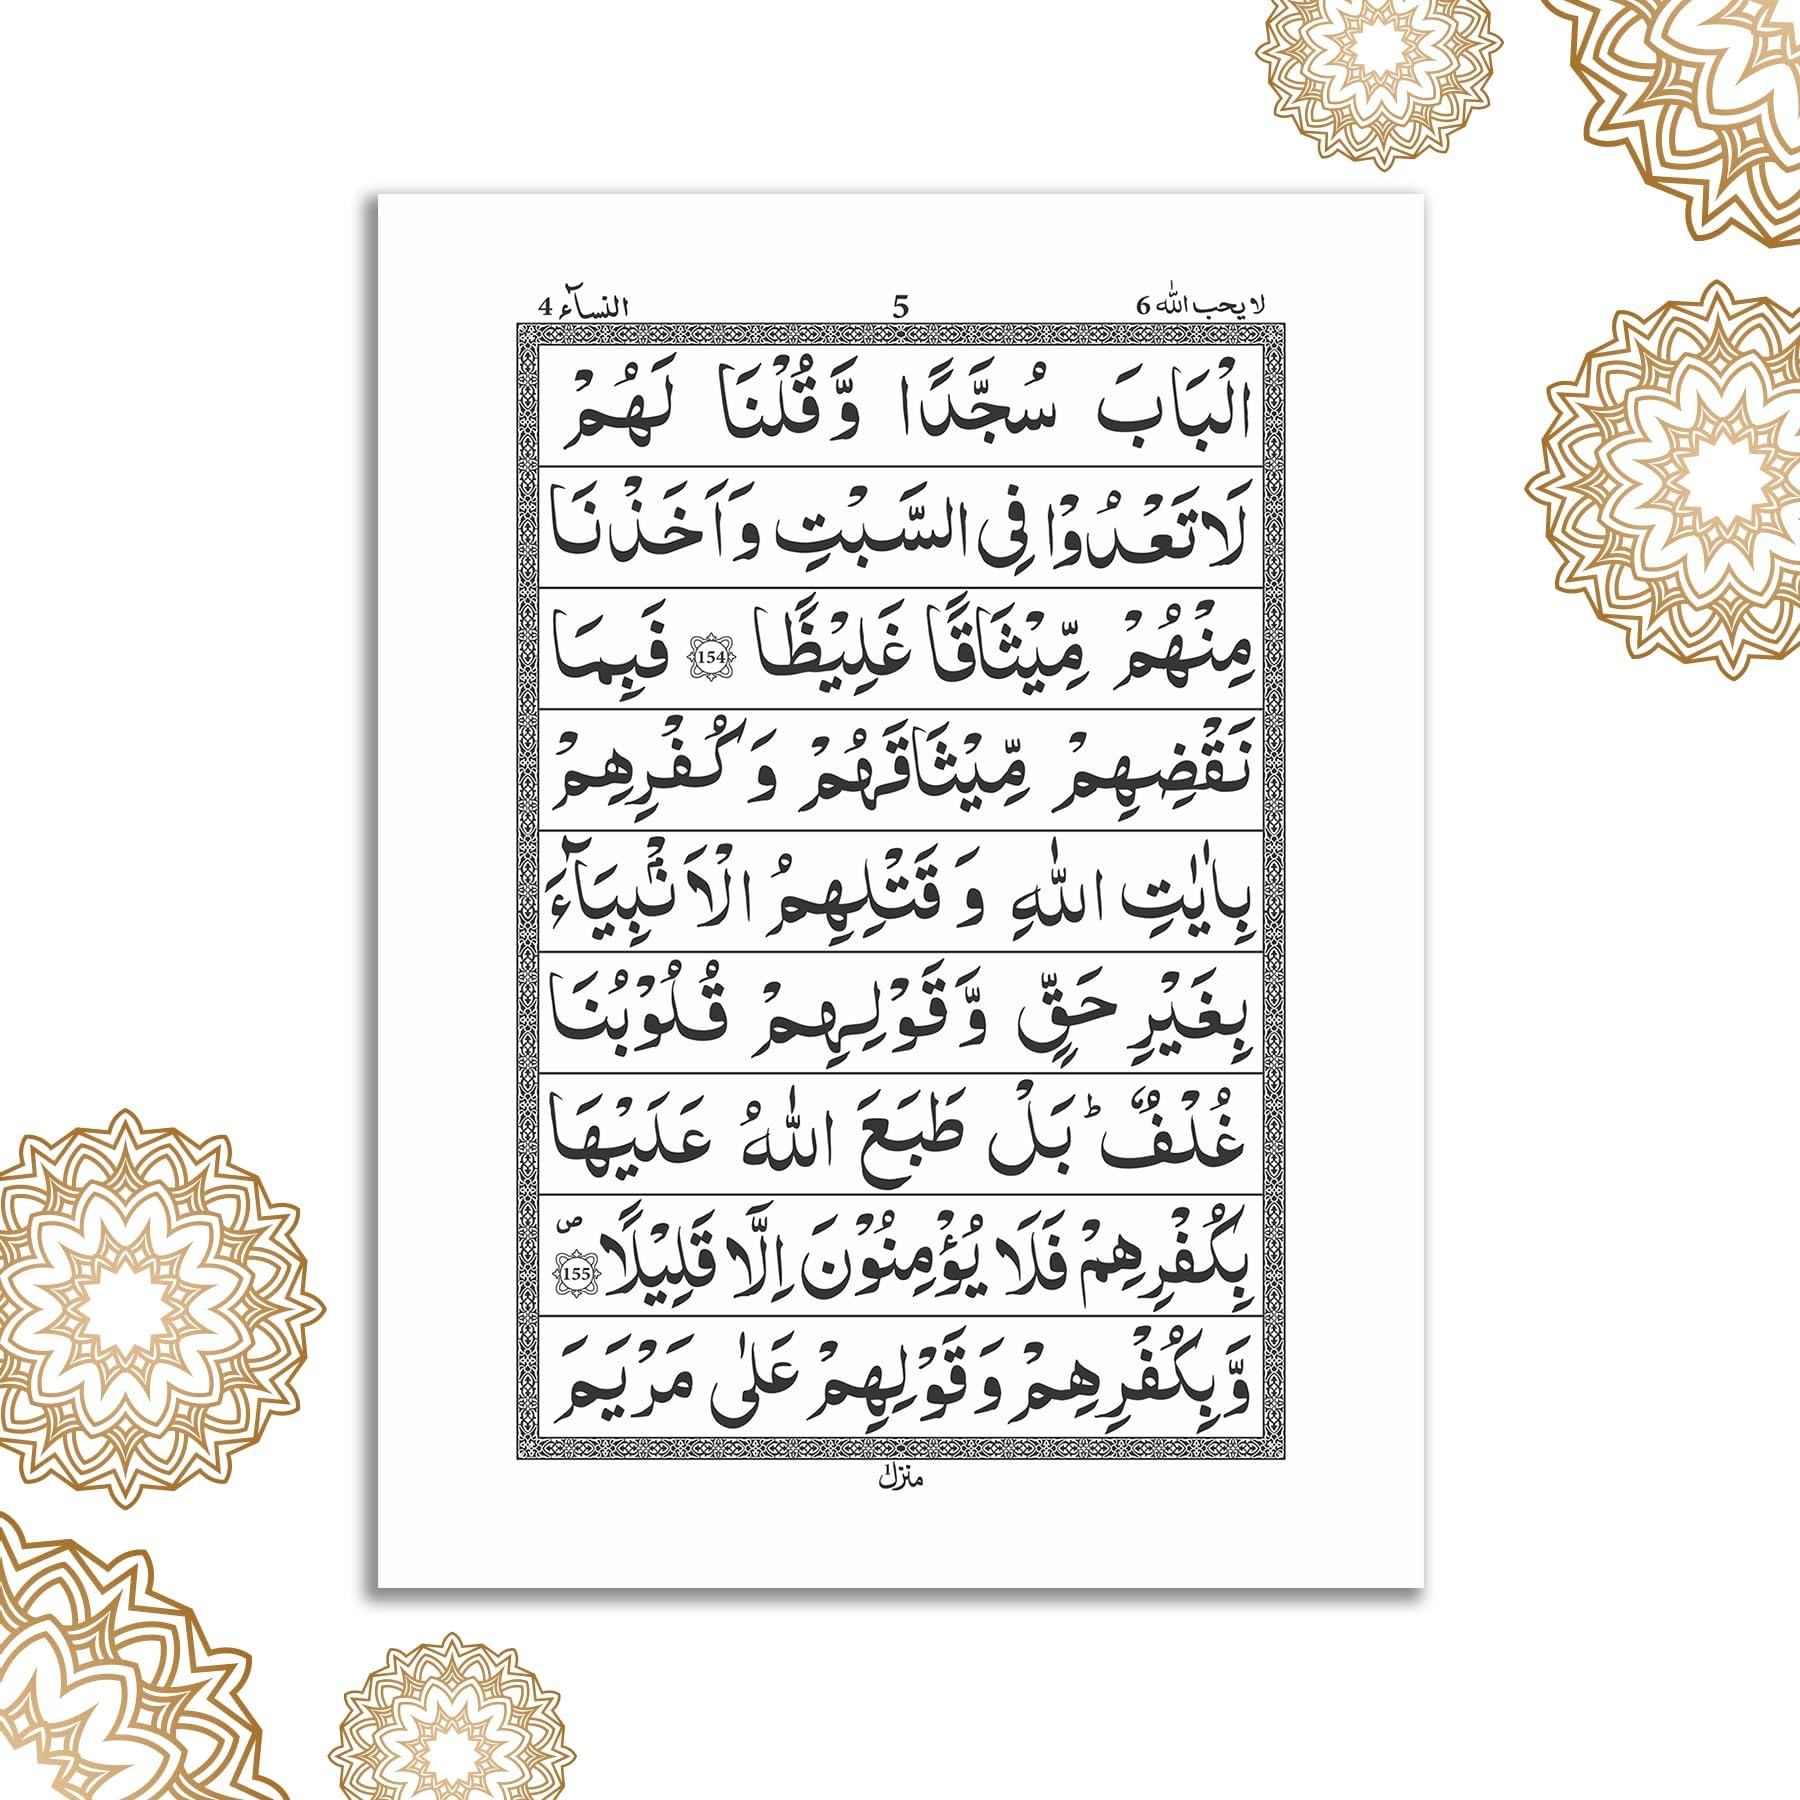 لا یحب اللّٰه 6 5 النسآء 4
الْبَابَ سُجَّدًا وَّقُلْنَا لَهُمْ
لَا تَعْدُوْا فِی السَّبْتِ وَاَخَذْنَا
مِنْهُمْ مِّیْثَاقًا غَلِیْظًا 154 فَبِمَا
نَقْضِهِمْ مِّیْثَاقَهُمْ وَ كُفْرِهِمْ
بِاٰیٰتِ اللّٰهِ وَ قَتْلِهِمُ الْاَنْۢبِیَآءَ
بِغَیْرِ حَقٍّ وَّ قَوْلِهِمْ قُلُوْبُنَا
غُلْفٌ ؕ بَلْ طَبَعَ اللّٰهُ عَلَیْهَا
بِكُفْرِهِمْ فَلَا یُؤْمِنُوْنَ اِلَّا قَلِیْلًا 155 ص
وَّبِكُفْرِهِمْ وَ قَوْلِهِمْ عَلٰی مَرْیَمَ
منزل ١